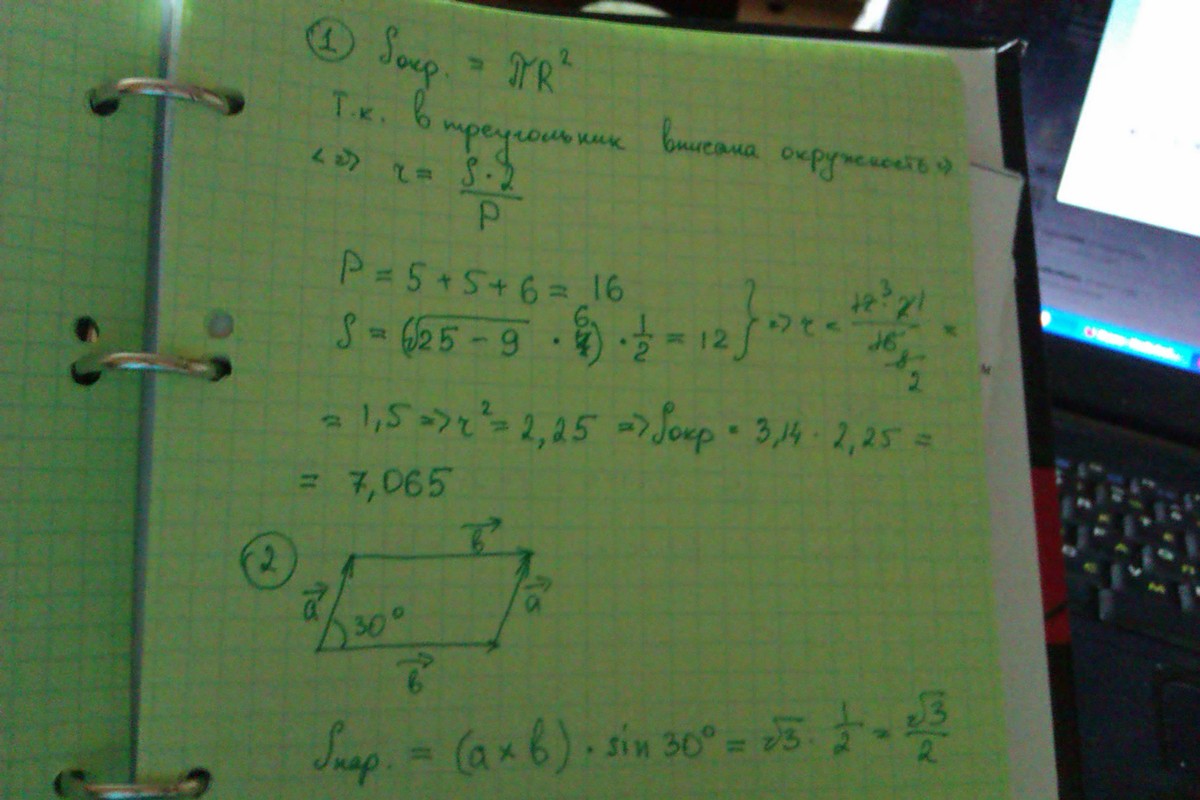 1 Sокр. = πR²
Т.к. в треугольник вписана окружность =>
<=> r = S·2/P
P = 5 + 5 + 6 = 16
S = (√25 - 9 · 6) · 1/2 = 12 } => r = 12³ · 2¹/16 8 2 =
= 1,5 => r² = 2,25 => Sокр = 3,14 · 2,25 =
= 7,065
2
b
a
a
30°
b
Sпар. = (a × b) · sin 30° = √3 · 1/2 = √3/2